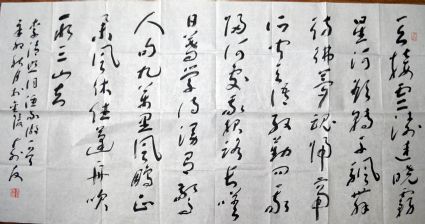 天接雲濤連曉霧
星河欲轉千帆舞
彷彿夢魂歸帝
所聞天語殷勤問我
歸何處我報路長嗟
日暮學詩謾有驚
人句九萬里風鵬正
舉風休住蓬舟吹
取三山去
李清照漁家傲一首
辛卯秋月於金陵